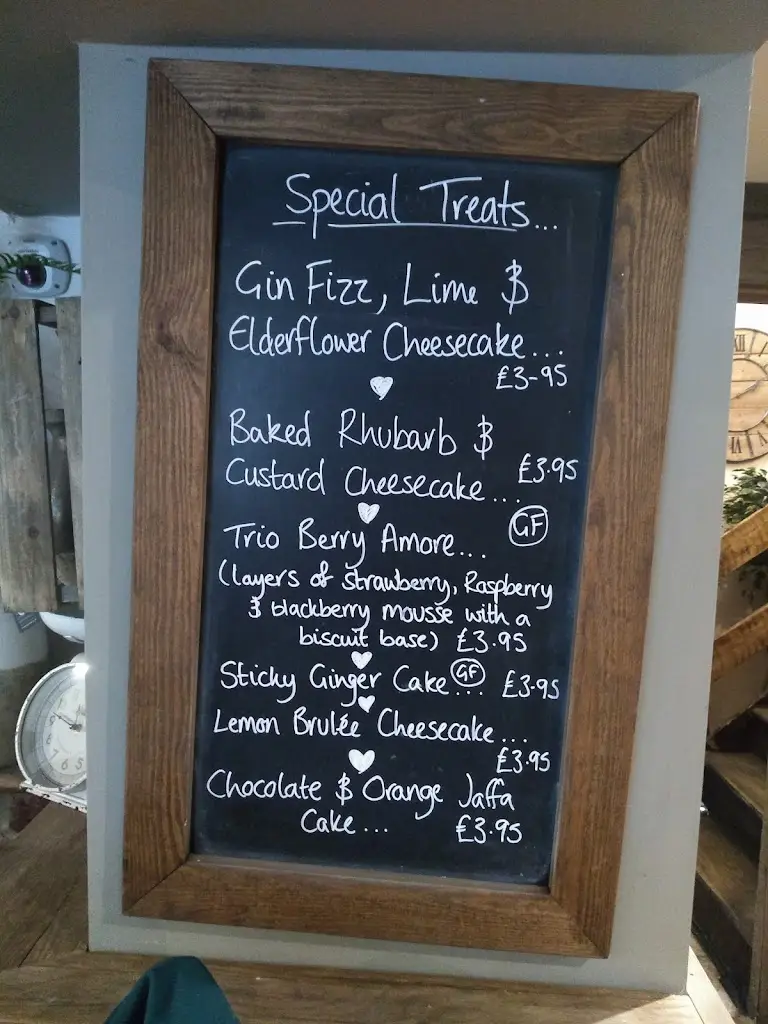 Special Treats...
Gin Fizz, Lime &
Elderflower Cheesecake...
£3-95
Baked Rhubarb &
Custard Cheesecake... £3.95
Trio Berry Amore... GF
(layers of strawberry, Raspberry
& blackberry mousse with a
biscuit base) £3.95
Sticky Ginger Cake... GF £3.95
Lemon Brulée Cheesecake...
£3.95
Chocolate & Orange Jaffa
Cake... £3.95